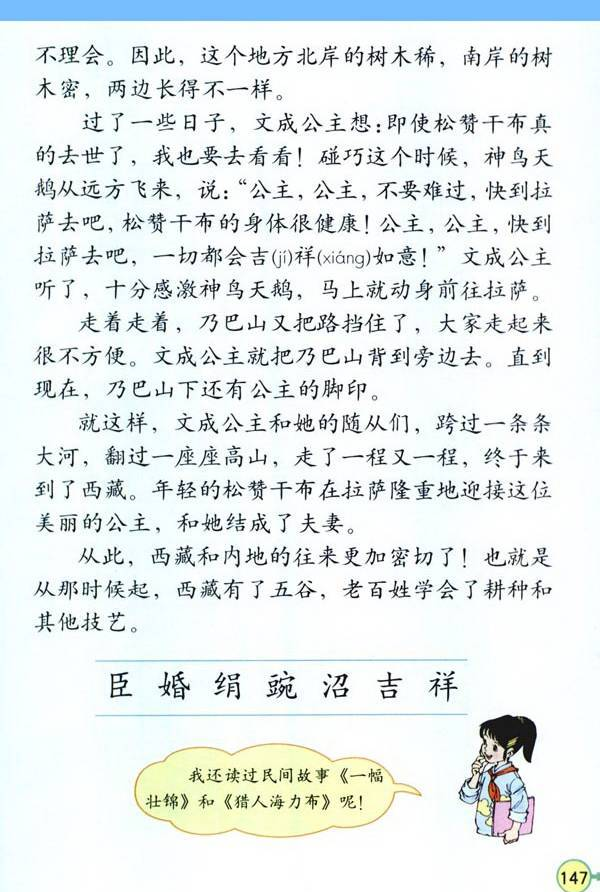 不理会。因此，这个地方北岸的树木稀，南岸的树
木密，两边长得不一样。
过了一些日子，文成公主想：即使松赞干布真
的去世了，我也要去看看！碰巧这个时候，神鸟天
鹅从远方飞来，说：“公主，公主，不要难过，快到拉
萨去吧，松赞干布的身体很健康！公主，公主，快到
拉萨去吧，一切都会吉(jí)祥(xiáng)如意！”文成公主
听了，十分感激神鸟天鹅，马上就动身前往拉萨。
走着走着，乃巴山又把路挡住了，大家走起来
很不方便。文成公主就把乃巴山背到旁边去。直到
现在，乃巴山下还有公主的脚印。
就这样，文成公主和她的随从们，跨过一条条
大河，翻过一座座高山，走了一程又一程，终于来
到了西藏。年轻的松赞干布在拉萨隆重地迎接这位
美丽的公主，和她结成了夫妻。
从此，西藏和内地的往来更加密切了！也就是
从那时候起，西藏有了五谷，老百姓学会了耕种和
其他技艺。
臣 婚 绢 豌 沼 吉 祥
我还读过民间故事《一幅
壮锦》和《猎人海力布》呢！
147